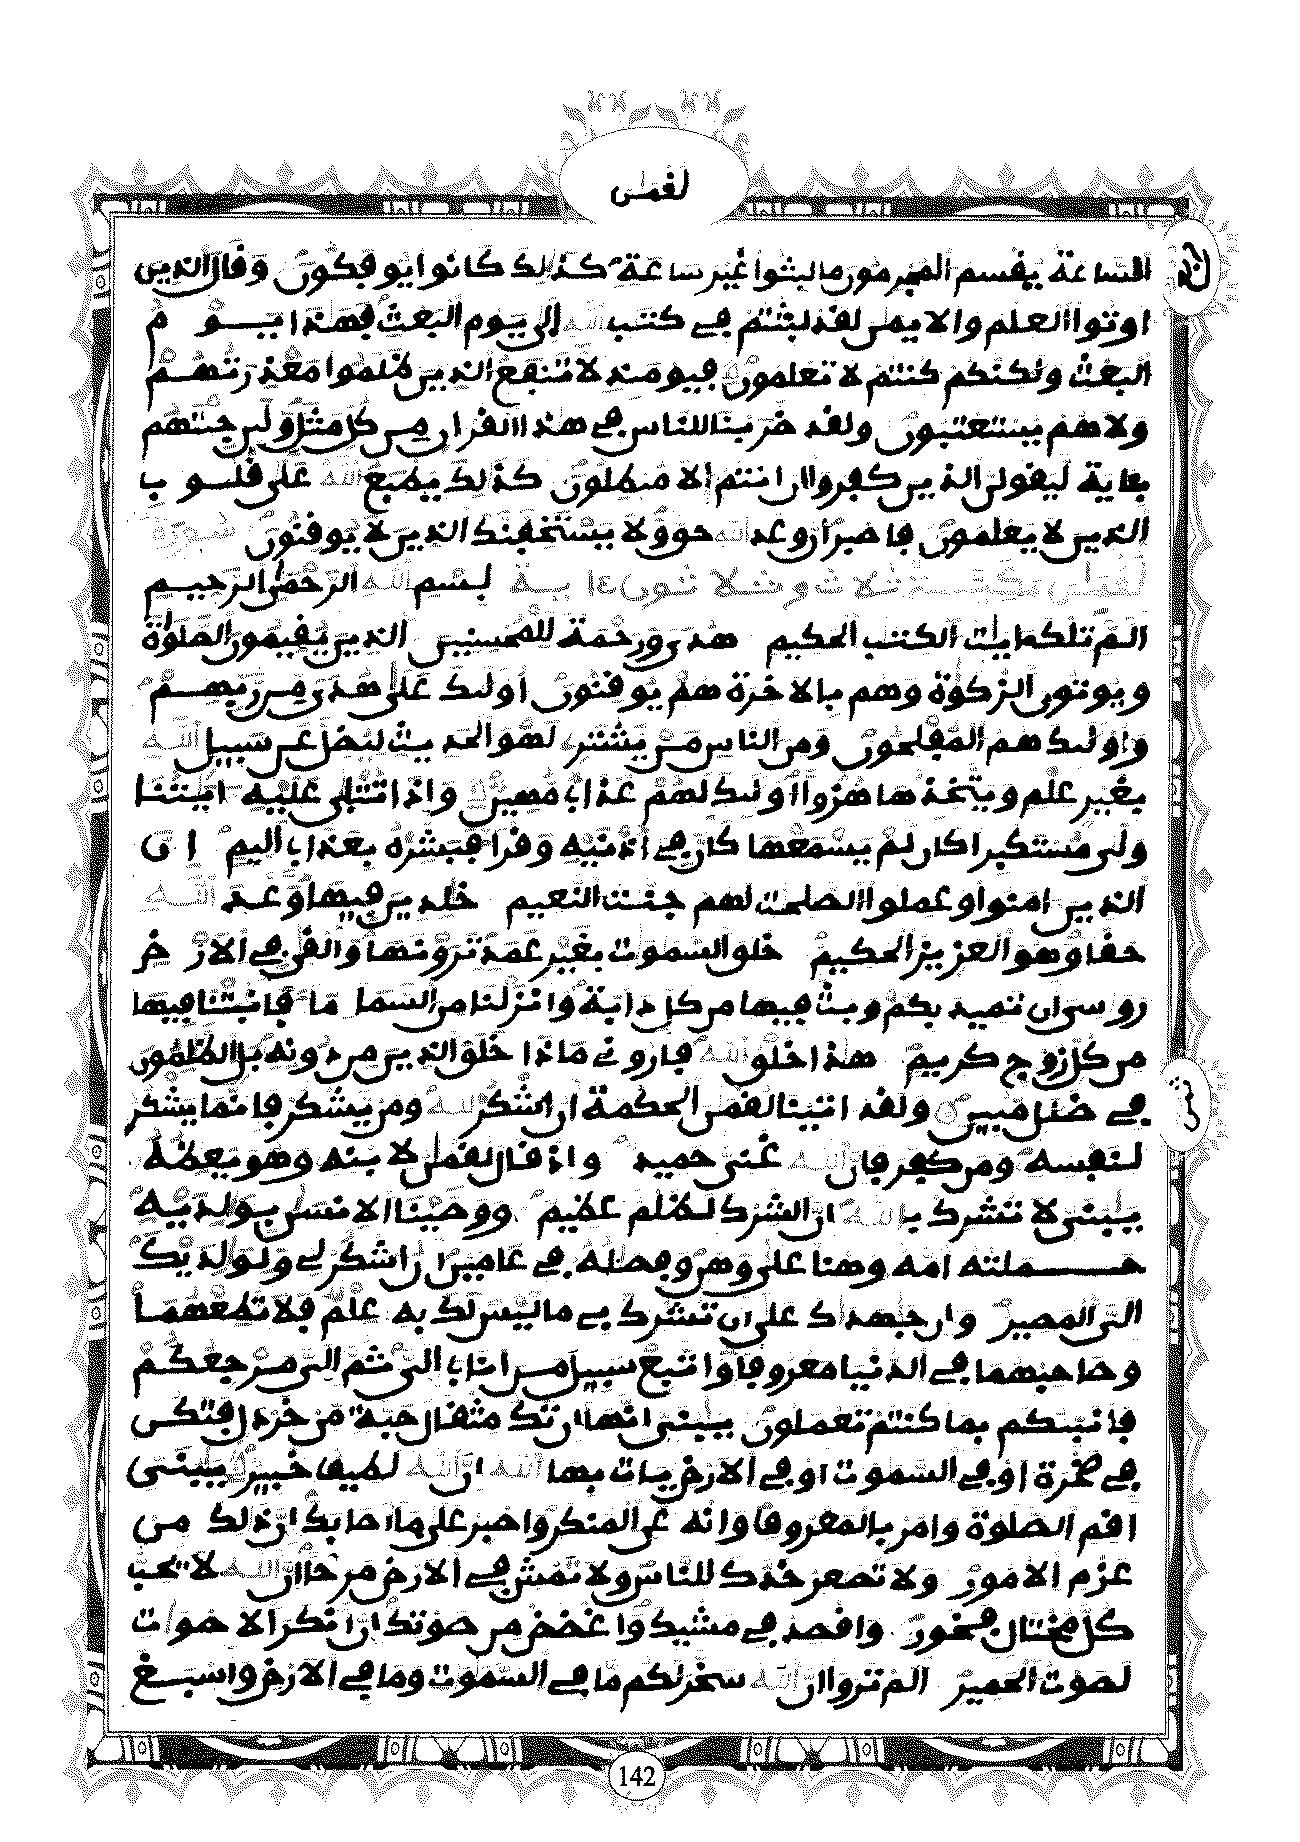 لقمن
الساعة يقسم المجرمون مالبثوا غير ساعة كذلك كانوا يوفكون وقال الذين
اوتوا العلم والايمن لقد لبثتم في كتب الله الى يوم البعث فهذا يوم
البعث ولكنكم كنتم لا تعلمون فيومئذ لا تنفع الذين ظلموا معذرتهم
ولا هم يستعتبون ولقد ضربنا للناس في هذا القران من كل مثل ولين جئتهم
بئاية ليقولن الذين كفروا ان انتم الا مبطلون كذلك يطبع الله على قلوب
الذين لا يعلمون فاصبر ان وعد الله حق ولا يستخفنك الذين لا يوقنون سورة
لقمن مكية ثلاث وثلاثون ءاية بسم الله الرحمن الرحيم
الم تلك ءايت الكتب الحكيم هدى ورحمة للمحسنين الذين يقيمون الصلوة
ويوتون الزكوة وهم بالاخرة هم يوقنون اوليك على هدى من ربهم
واوليك هم المفلحون ومن الناس من يشتري لهو الحديث ليضل عن سبيل الله
بغير علم ويتخذها هزوا اوليك لهم عذاب مهين واذا تتلى عليه ايتنا
ولى مستكبرا كان لم يسمعها كان في اذنيه وقرا فبشره بعذاب اليم ان
الذين امنوا وعملوا الصلحت لهم جنت النعيم خلدين فيها وعد الله
حقا وهو العزيز الحكيم خلق السموت بغير عمد ترونها والقى في الارض
روسي ان تميد بكم وبث فيها من كل دابة وانزلنا من السما ما فانبتنا فيها
من كل زوج كريم هذا خلق الله فاروني ماذا خلق الذين من دونه بل الظلمون
في ضلل مبين ولقد اتينا لقمن الحكمة ان اشكر لله ومن يشكر فانما يشكر
لنفسه ومن كفر فان الله غني حميد واذ قال لقمن لابنه وهو يعظه
يبني لا تشرك بالله ان الشرك لظلم عظيم ووصينا الانسن بولديه
حملته امه وهنا على وهن وفصله في عامين ان اشكر لي ولولديك
الي المصير وان جهدك على ان تشرك بي ما ليس لك به علم فلا تطعهما
وصاحبهما في الدنيا معروفا واتبع سبيل من اناب الي ثم الي مرجعكم
فانبيكم بما كنتم تعملون يبني انها ان تك مثقال حبة من خردل فتكن
في صخرة او في السموت او في الارض يات بها الله ان الله لطيف خبير يبني
اقم الصلوة وامر بالمعروف وانه عن المنكر واصبر على ما اصابك ان ذلك من
عزم الامور ولا تصعر خدك للناس ولا تمش في الارض مرحا ان الله لا يحب
كل مختال فخور واقصد في مشيك واغضض من صوتك ان انكر الاصوات
لصوت الحمير الم تروا ان الله سخر لكم ما في السموت وما في الارض واسبغ
142